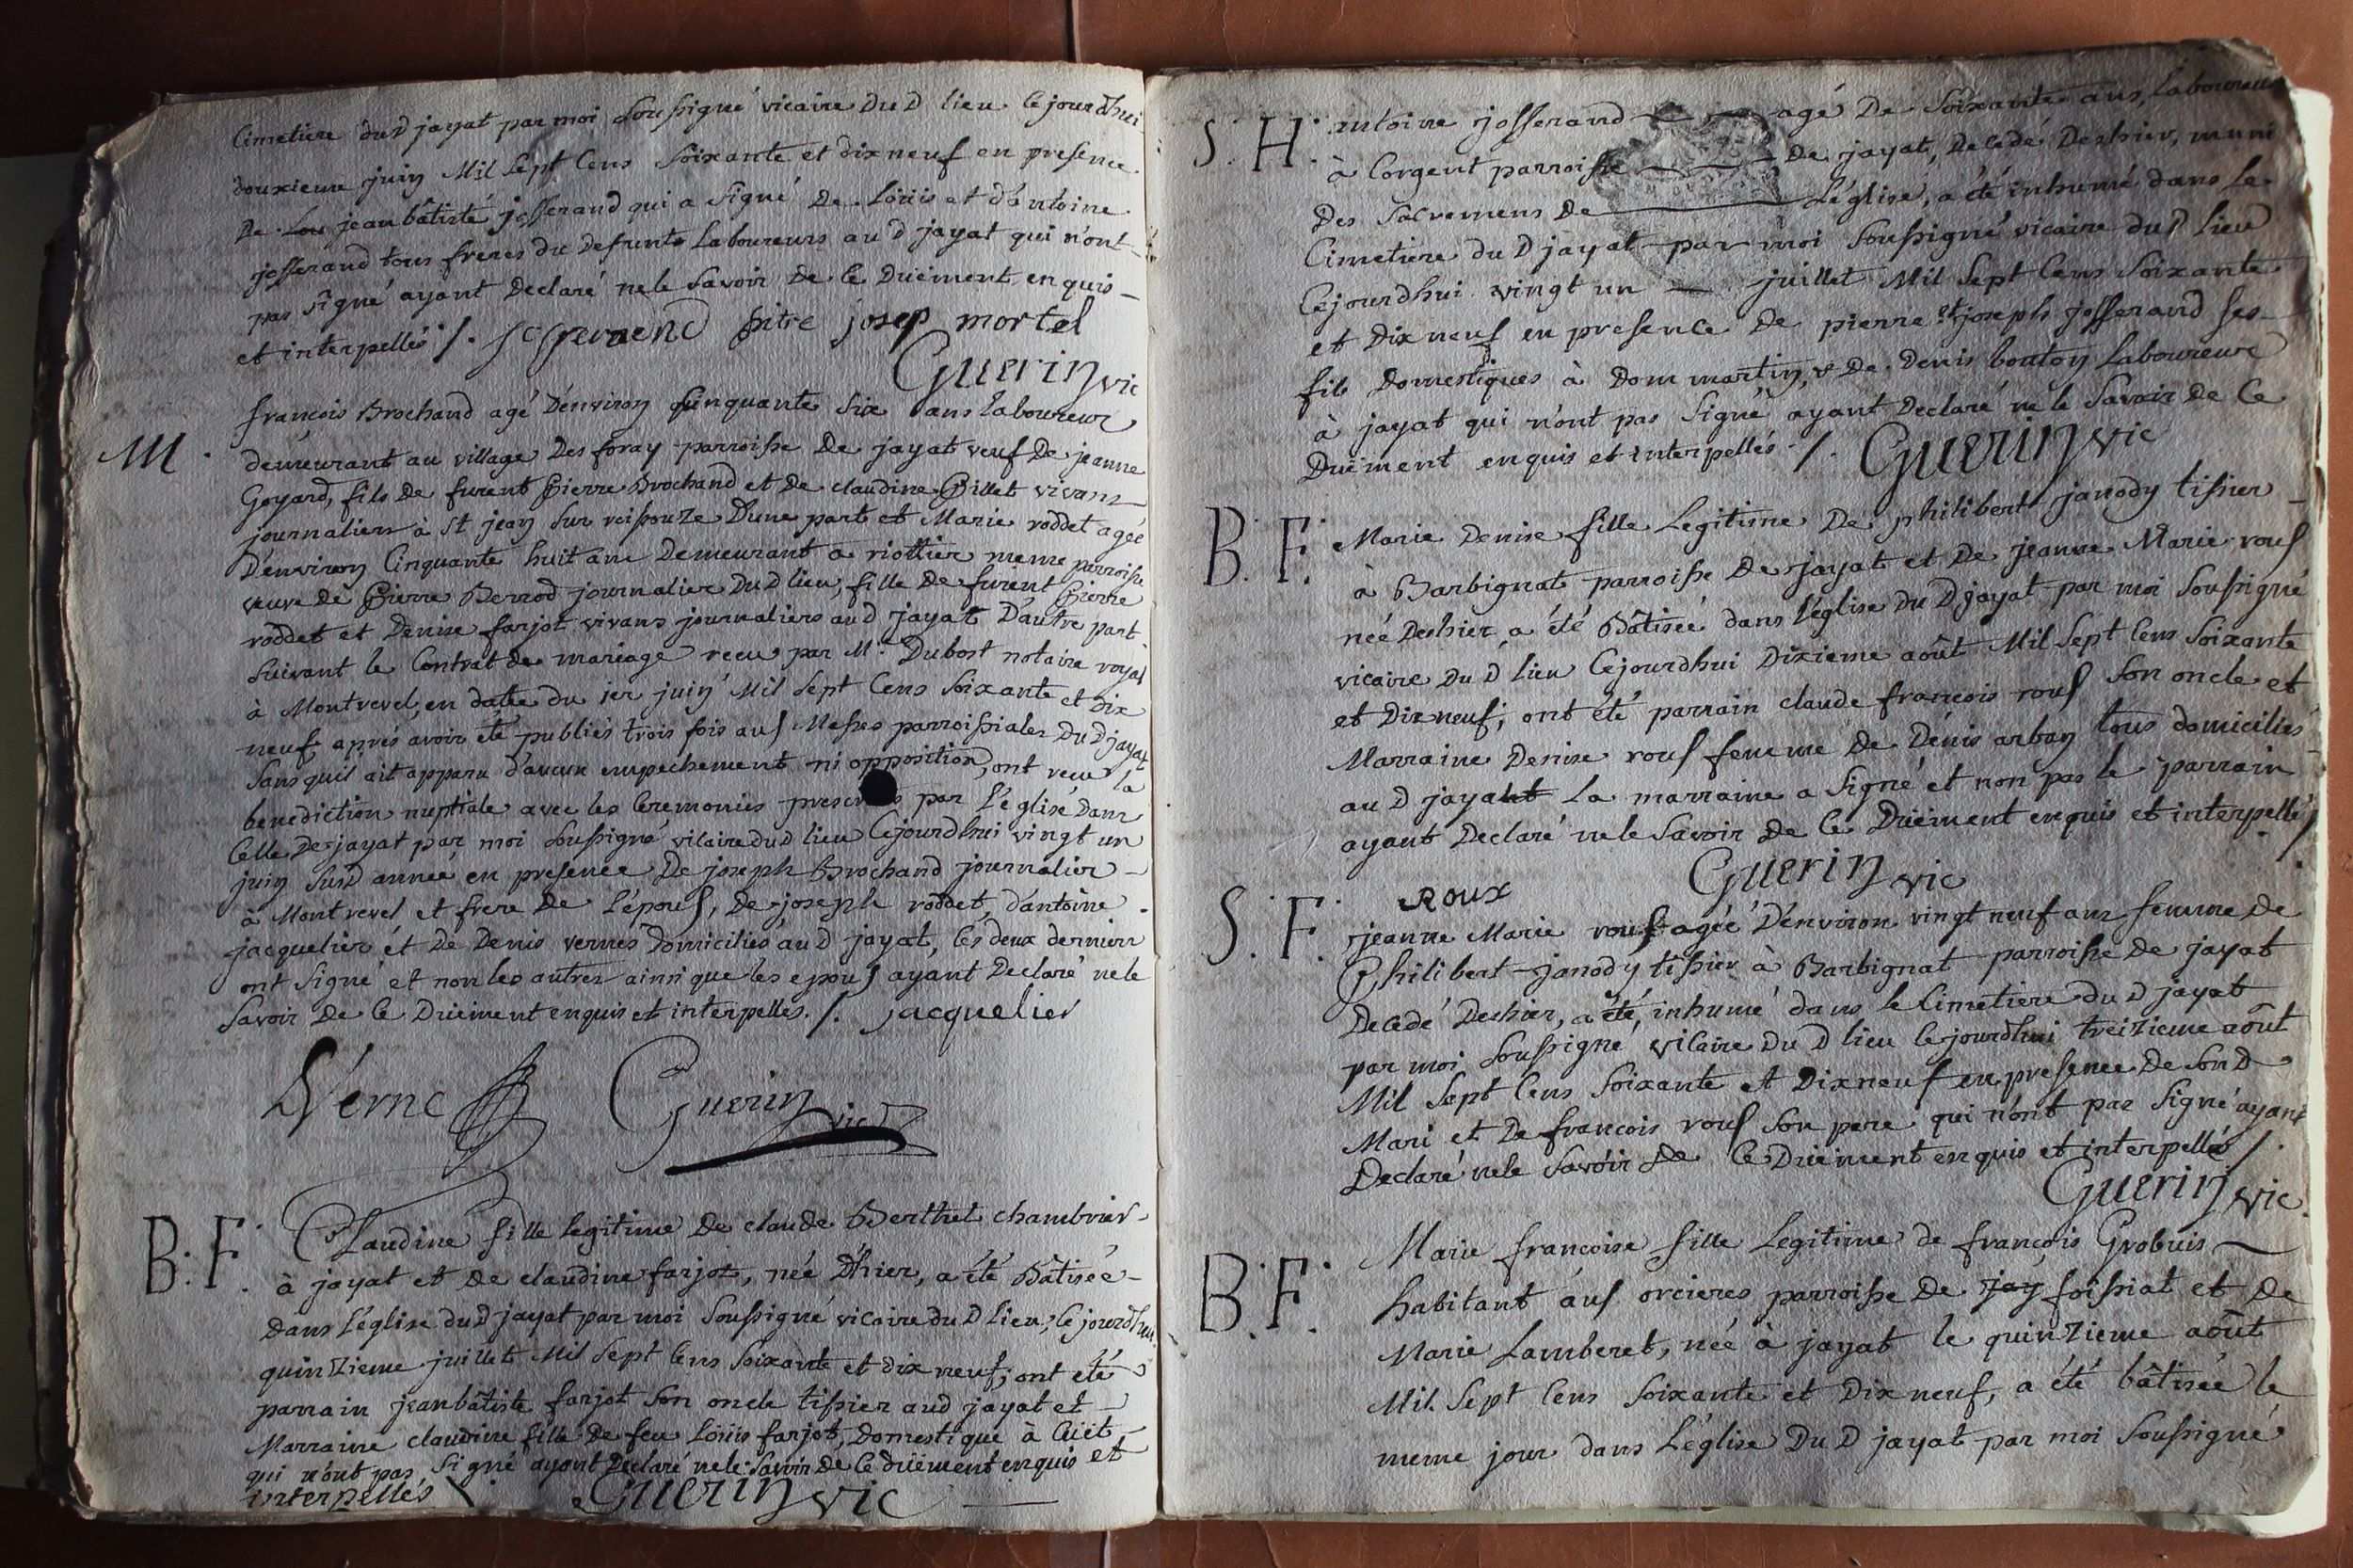 Cimetiere dud jayat par moi soussigné vicaire dud lieu cejourdhui
douxieme juin mil sept cens soixante et dix neuf en presence
de jean bâtisté josserand qui a signé de loüis et d'antoine
josserand tous freres du defunts laboureurs aud jayat qui n'ont
pas signé ayant declaré ne le savoir de ce düement enquis
et interpellés /. josep mortel
Guerin vic
M.
francois Brochand agé d'environ cinquante six ans laboureur
demeurant au village des foray parroisse de jayat veuf de jeanne
Goyard, fils de furent Pierre Brochand et de claudine Billet vivans
journaliers à st jean sur reissouze d'une part et Marie roddet agée
d'environ cinquante huit ans demeurant a riottier meme parroisse
veuve de Pierre Berrod journalier dud lieu, fille de furent Pierre
roddet et denise farjot vivans journaliers aud jayat d'autre part
suivant le contrat de mariage recu par Mr Dubost notaire royal
à Montrevel, en datte du 1er juin mil sept cens soixante et dix
neuf, aprés avoir été publiés trois fois aus Messes parroissiales dud jayat
sans quil ait apparu d'aucun empechement ni opposition, ont recu la
benediction nuptiale avec les ceremonies par l'eglise dans
celle de jayat par moi soussigné vicaire dud lieu cejourdhui vingt un
juin susd année en presence de joseph Brochand journalier
à Montrevel et frere de l'épous, de joseph roddet, d'antoine
jacquelier et de denis vernes domiciliés aud jayat, les deux derniers
ont signé et non les autres ainsi que les epous ayant declaré ne le
savoir de ce düement enquis et interpelles /. jacquelier
Verne Guerin vic
B: F:
Claudine fille legitime de claude Berthet chambrier
à jayat et de claudine farjot, née d'hier, a été Bâtisée
dans l'église dud jayat par moi soussigné vicaire dud lieu, cejourdhui
quinzieme juillet mil sept cens soixante et dix neuf; ont été
parrain jean bâtiste farjot son oncle tissier aud jayat et
Marraine claudine fille de feu loüis farjot, domestique à Cüet
qui n'ont pas signé ayant declaré ne le savoir de ce düement enquis et
interpellés Guerin vic
S: H:
antoine josserand agé de soixante ans, laboureur
à lorgent parroisse de jayat, decedé deshier, muni
des sacremens de l'église, a été inhumé dans le
cimetiere du d jayat par moi soussigné vicaire dud lieu
Cejourdhui vingt un juillet mil sept cens soixante
et dix neuf en presence de pierre et joseph josserand ses
fils domestiques à dommartin, & de denis bouton laboureur
à jayat qui n'ont pas signé ayant declaré ne le savoir de ce
düement enquis et interpellés /. Guerin vic
B: F:
Marie denise fille legitime de philibert janody tissier
à Barbignat parroisse de jayat et de jeanne Marie rous
née deshier a été Bâtisée dans l'église du d jayat par moi soussigné
vicaire du d lieu cejourdhui dixieme août mil sept cens soixante
et dix neuf; ont été parrain claude francois rous son oncle et
Marraine denise rous femme de denis arban tous domicilles
au d jayat la marraine a signé et non pas le parrain
ayant declaré ne le savoir de ce düement enquis et interpellé /.
roux Guerin vic
S: F:
jeanne Marie rous agée d'environ vingt neuf ans femme de
Philibert janody tissier à Barbignat parroisse de jayat
decedé deshier, a été inhumé dans le cimetiere du d jayat
par moi soussigné vicaire du d lieu cejourdhui treizieme août
mil sept cens soixante et dix neuf en presence de son d
Mari et de francois rous son pere qui n'ont pas signé ayant
declaré ne le savoir de ce düement enquis et interpellé /.
Guerin vic
B: F:
Marie francoise fille legitime de francois Grobuis
habitant aus orcieres parroisse de jay foissiat et de
Marie Lamberet, née à jayat le quinzieme août
Mil sept cens soixante et dix neuf, a été bâtisée le
meme jour dans l'église du d jayat par moi soussigné